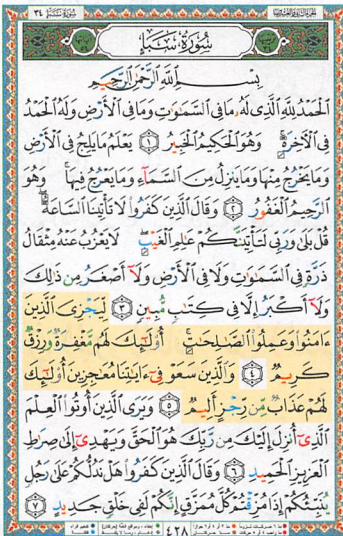 سُورَةُ سَبَإٍ
بِسْمِ ٱللَّهِ ٱلرَّحْمَٰنِ ٱلرَّحِيمِ
ٱلْحَمْدُ لِلَّهِ ٱلَّذِى لَهُۥ مَا فِى ٱلسَّمَٰوَٰتِ وَمَا فِى ٱلْأَرْضِ وَلَهُ ٱلْحَمْدُ
فِى ٱلْأَخِرَةِ ۚ وَهُوَ ٱلْحَكِيمُ ٱلْخَبِيرُ ١ يَعْلَمُ مَا يَلِجُ فِى ٱلْأَرْضِ
وَمَا يَخْرُجُ مِنْهَا وَمَا يَنزِلُ مِنَ ٱلسَّمَآءِ وَمَا يَعْرُجُ فِيهَا ۚ وَهُوَ
ٱلرَّحِيمُ ٱلْغَفُورُ ٢ وَقَالَ ٱلَّذِينَ كَفَرُوا۟ لَا تَأْتِينَا ٱلسَّاعَةُ ۖ
قُلْ بَلَىٰ وَرَبِّى لَتَأْتِيَنَّكُمْ عَٰلِمِ ٱلْغَيْبِ ۖ لَا يَعْزُبُ عَنْهُ مِثْقَالُ
ذَرَّةٍ فِى ٱلسَّمَٰوَٰتِ وَلَا فِى ٱلْأَرْضِ وَلَآ أَصْغَرُ مِن ذَٰلِكَ
وَلَآ أَكْبَرُ إِلَّا فِى كِتَٰبٍ مُّبِينٍ ٣ لِّيَجْزِىَ ٱلَّذِينَ
ءَامَنُوا۟ وَعَمِلُوا۟ ٱلصَّٰلِحَٰتِ ۚ أُو۟لَٰٓئِكَ لَهُم مَّغْفِرَةٌ وَرِزْقٌ
كَرِيمٌ ٤ وَٱلَّذِينَ سَعَوْ فِىٓ ءَايَٰتِنَا مُعَٰجِزِينَ أُو۟لَٰٓئِكَ
لَهُمْ عَذَابٌ مِّن رِّجْزٍ أَلِيمٌ ٥ وَيَرَى ٱلَّذِينَ أُوتُوا۟ ٱلْعِلْمَ
ٱلَّذِىٓ أُنزِلَ إِلَيْكَ مِن رَّبِّكَ هُوَ ٱلْحَقَّ وَيَهْدِىٓ إِلَىٰ صِرَٰطِ
ٱلْعَزِيزِ ٱلْحَمِيدِ ٦ وَقَالَ ٱلَّذِينَ كَفَرُوا۟ هَلْ نَدُلُّكُمْ عَلَىٰ رَجُلٍ
يُنَبِّئُكُمْ إِذَا مُزِّقْتُمْ كُلَّ مُمَزَّقٍ إِنَّكُمْ لَفِى خَلْقٍ جَدِيدٍ ٧
٤٢٨